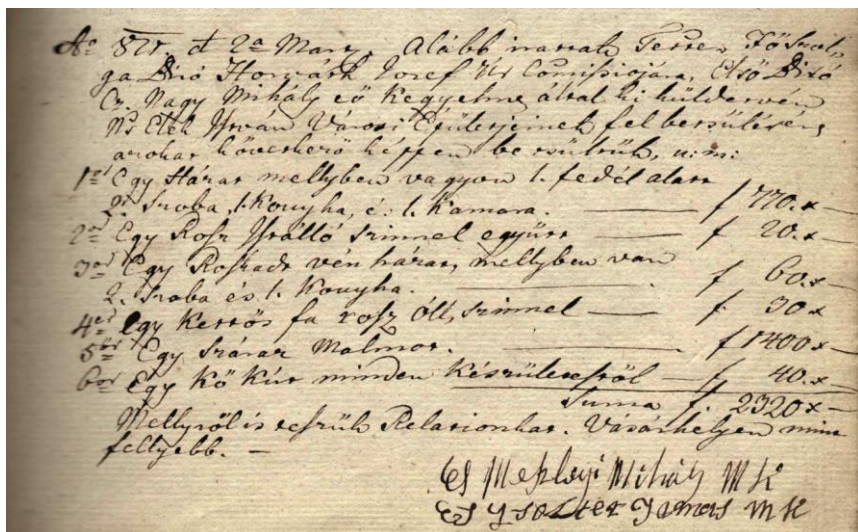 Aº 825. d 2ª Marz. Alább irattak Tettes Fő Szol-
ga Biró Horváth Josef Ur Comissiojára, Első Biró
Cz. Nagy Mihály eő Kegyelme által ki küldetvén
Ns Elek István Városi Épületjeinek fel betsülésére,
azokat következő képpen betsültük, u: m:
1ör Egy Házat mellyben vagyon 1. fedél alatt
2. Szoba, 1. Konyha, és 1. Kamara. — f 770. x —
2or Egy Rosz Istálló szinnel együtt — f 20. x —
3or Egy Roszadt vén házat, mellyben van
2. Szoba és 1. Konyha. — f 60. x —
4er Egy Kettős fa rosz óll, szinnel — f 30 x
5ör Egy Száraz Malmot. — f 1400 x —
6or Egy Kő Kút minden Készületestöl — f 40. x —
Suma f. 2320 x —
Mellyről is teszük Relationkat. Vásárhelyen mint
fellyebb. —
Mihály MK
MK